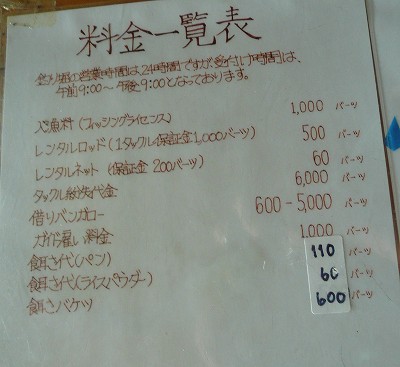 料金一覧表
釣り堀の営業時間は、24時間ですが、受付け時間は、
午前9:00～午後9:00となっております。
入漁料(フィッシングライセンス) 1,000 バーツ
レンタルロッド(1タックル保証金1,000バーツ) 500 バーツ
レンタルネット(保証金 200バーツ) 60 バーツ
タックル紛失代金 6,000 バーツ
借りバンガロー 600-5,000 バーツ
ガイド雇い料金 1,000 バーツ
餌さ代(パン) 110 バーツ
餌さ代(ライスパウダー) 60 バーツ
餌さバケツ 600 バーツ